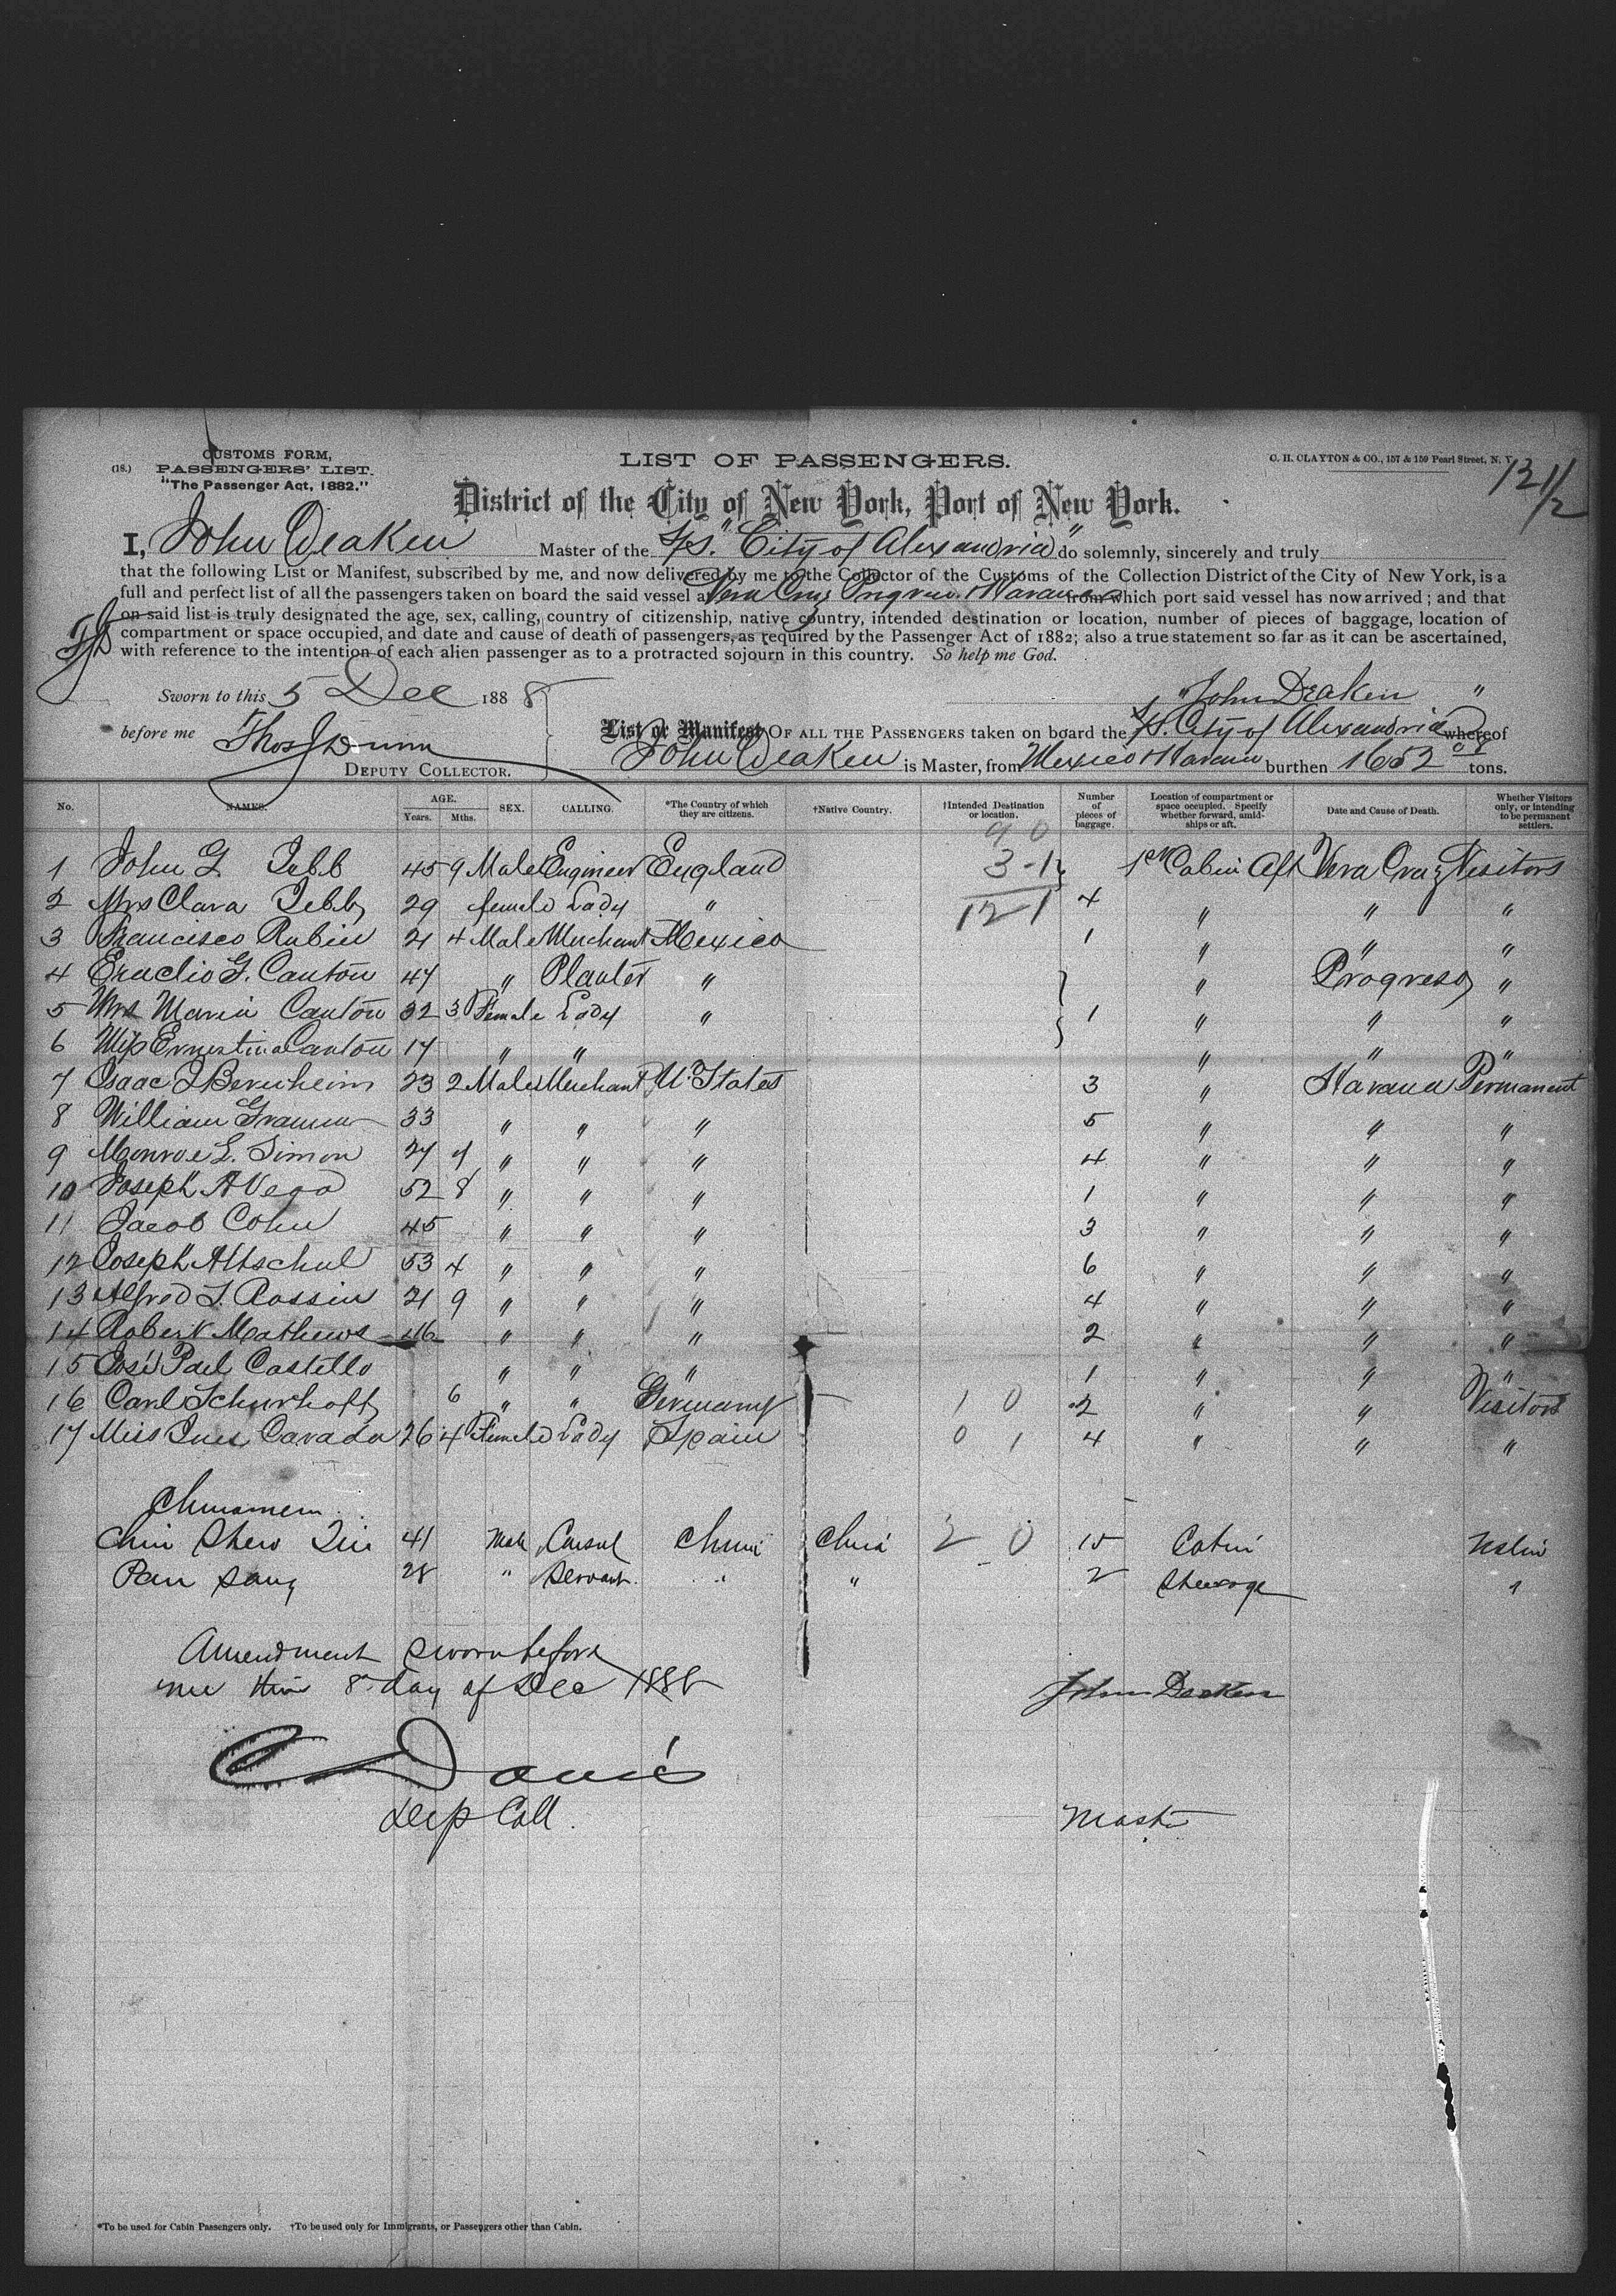 CUSTOMS FORM,
(18.) PASSENGERS' LIST.
"The Passenger Act, 1882."
LIST OF PASSENGERS.
C. H. CLAYTON & CO., 157 & 159 Pearl Street, N. Y.
121/2
District of the City of New York, Port of New York.
I, John Deaken Master of the S/S. "City of Alexandria" do solemnly, sincerely and truly
that the following List or Manifest, subscribed by me, and now delivered by me to the Collector of the Customs of the Collection District of the City of New York, is a
full and perfect list of all the passengers taken on board the said vessel at Vera Cruz Progreso Havana from which port said vessel has now arrived; and that
on said list is truly designated the age, sex, calling, country of citizenship, native country, intended destination or location, number of pieces of baggage, location of
compartment or space occupied, and date and cause of death of passengers, as required by the Passenger Act of 1882; also a true statement so far as it can be ascertained,
with reference to the intention of each alien passenger as to a protracted sojourn in this country. So help me God.
Sworn to this 5 Dec 1888 John Deaken
before me Thos J Dunn
DEPUTY COLLECTOR.
List or Manifest OF ALL THE PASSENGERS taken on board the S/S. "City of Alexandria" whereof
John Deaken is Master, from Mexico & Havana burthen 1652 tons.
No. NAMES. AGE. Years. Mths. SEX. CALLING. *The Country of which they are citizens. †Native Country. †Intended Destination or location. Number of pieces of baggage. Location of compartment or space occupied. Specify whether forward, amidships or aft. Date and Cause of Death. Whether Visitors only, or intending to be permanent settlers.
9 0
1 John G. Jebb 45 9 Male Engineer England 3-1 1st Cabin Aft Vera Cruz Visitors
2 Mrs Clara Jebb 29 female Lady " 121 4 " " "
3 Francisco Rubin 21 4 Male Merchant Mexico 1 " " "
4 Eraclio G. Canton 47 " Planter " " Progreso "
5 Mrs Maria Canton 32 3 Female Lady " 1 " " "
6 Miss Ernestina Canton 17 " " " " "
7 Isaac J Bernheim 23 2 Male Merchant U. States 3 " Havana Permanent
8 William Gramm 33 " " " 5 " " "
9 Monroe L. Simon 27 7 " " " 4 " " "
10 Joseph A Vega 52 8 " " " 1 " " "
11 Jacob Cohn 45 " " " 3 " " "
12 Joseph Altschul 53 4 " " " 6 " " "
13 Alfred S. Rossin 21 9 " " " 4 " " "
14 Robert Mathews 46 " " " 2 " " "
15 José Castello " " " 1 " " "
16 Carl Schurhoff 6 " " Germany 1 0 2 " " Visitors
17 Miss Ines Cavada 26 4 Female Lady Spain 0 1 4 " " "
Chinamen
Chin Shew 41 Male Consul China China 2 0 15 Cabin
Pan Sang 28 " Servant " " 2 Steerage "
Amendment sworn before
me this 8 day of Dec 1888 John Deaken
Davis
Dep Coll. Master
*To be used for Cabin Passengers only. †To be used only for Immigrants, or Passengers other than Cabin.